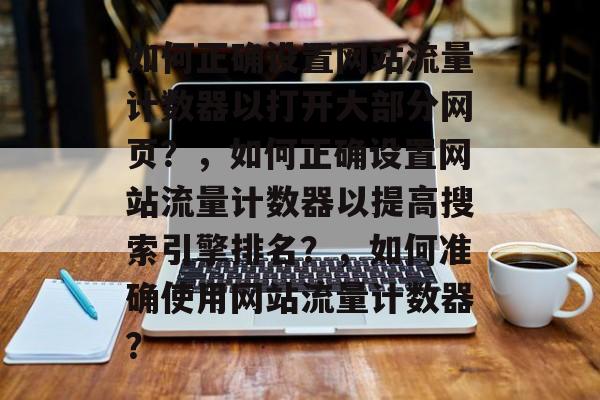 如何正确设置网站流量
计数器以打开大部分网
页？，如何正确设置网
站流量计数器以提高搜
索引擎排名？，如何准
确使用网站流量计数器
？